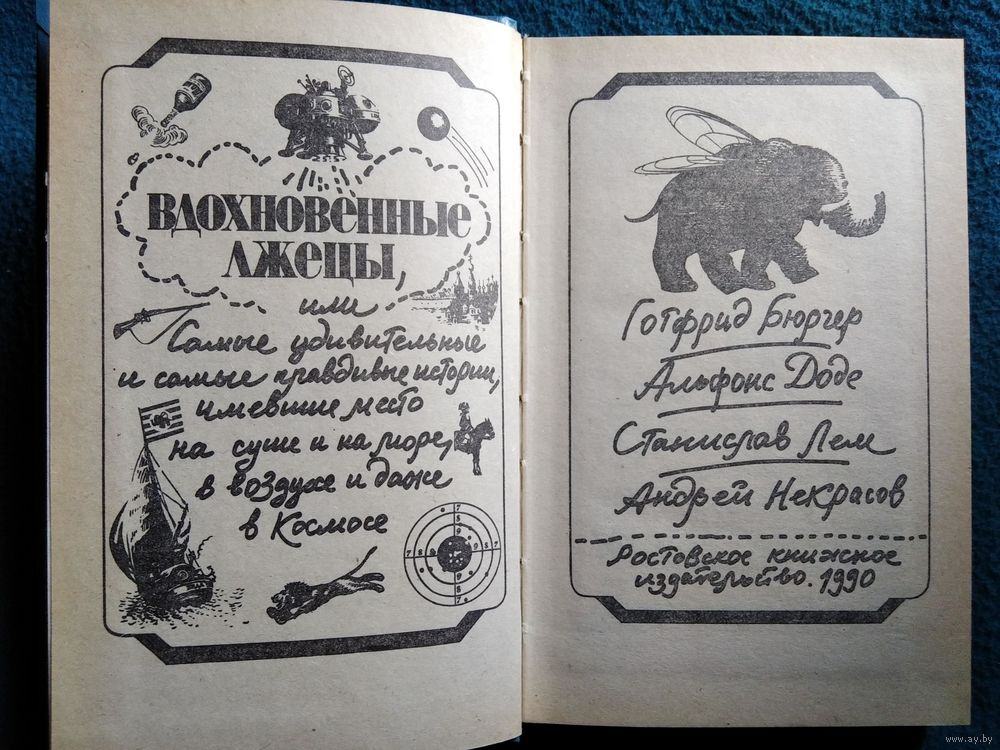 ВДОХНОВЕННЫЕ
ЛЖЕЦЫ,
или
Самые удивительные
и самые правдивые истории,
имевшие место
на суше и на море,
в воздухе и даже
в Космосе
Готфрид Бюргер
Альфонс Доде
Станислав Лем
Андрей Некрасов
Ростовское книжное
издательство. 1990
www.ay.by